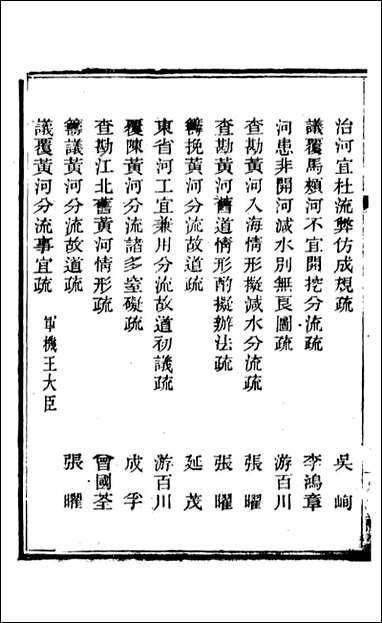 治河宜杜流弊仿成規疏 吳峋
議覆馬頰河不宜開挖分流疏 李鴻章
河患非開河減水別無良圖疏 游百川
查勘黃河入海情形擬減水分流疏 張曜
查勘黃河舊道情形酌擬辦法疏 張曜
籌挽黃河分流故道疏 延茂
東省河工宜兼用分流故道初議疏 游百川
覆陳黃河分流諸多窒礙疏 成孚
查勘江北舊黃河情形疏 曾國荃
籌議黃河分流故道疏 張曜
議覆黃河分流事宜疏 軍機王大臣